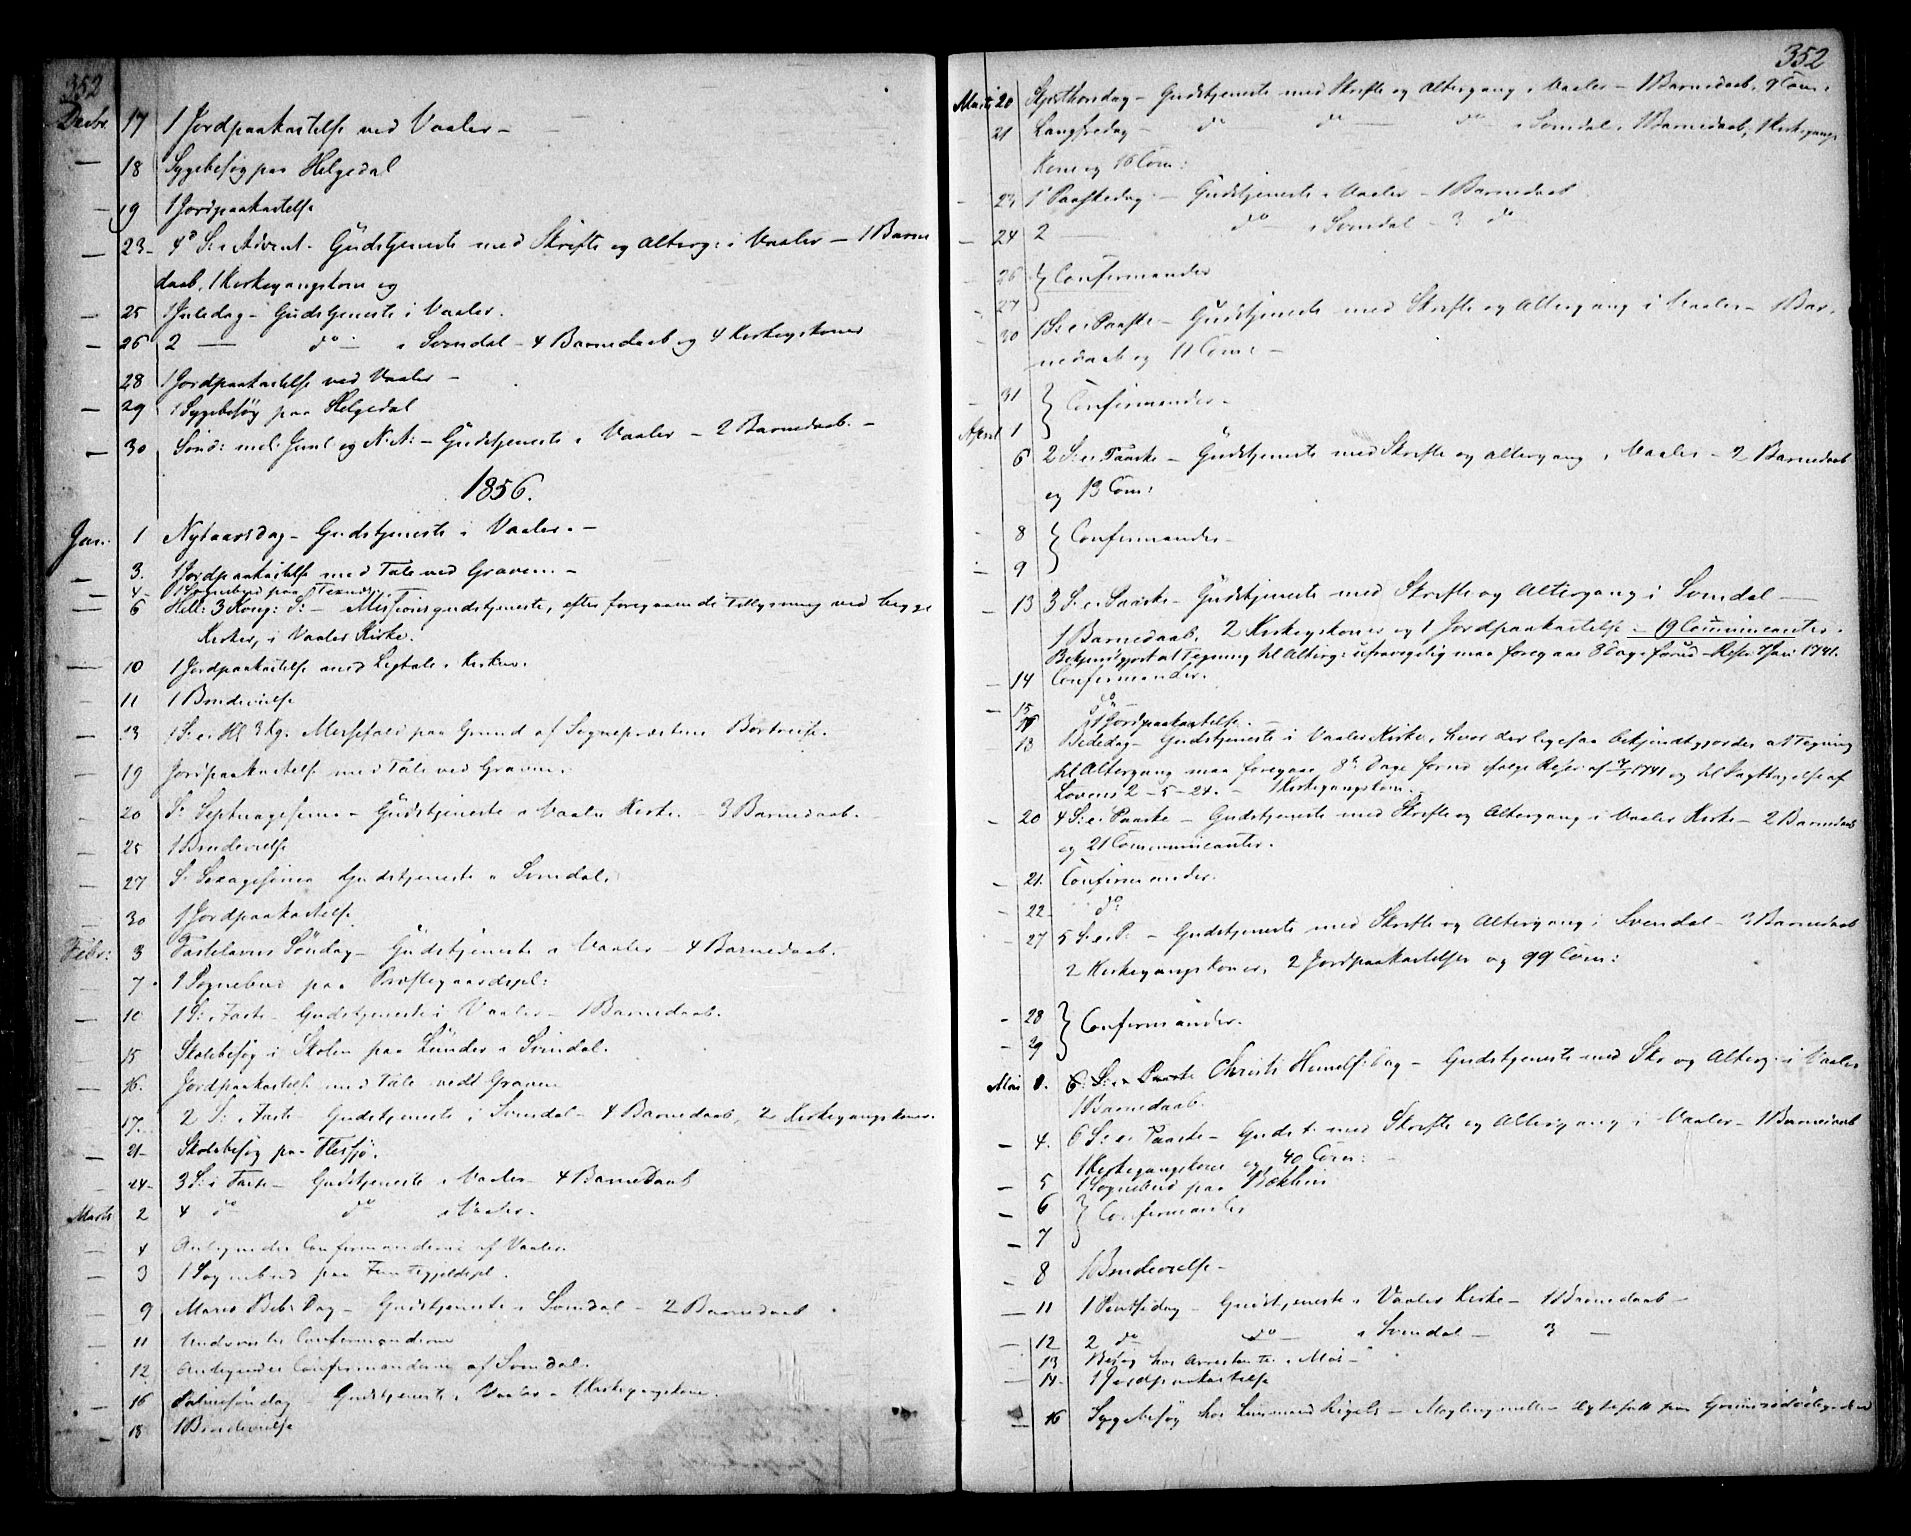 352
Decbr. 17 1 Jordpaakastelse ved Vaaler –
— 18 Sygebesøg paa Helgedal
— 19 1 Jordpaakastelse
— 23 – 4d S: i Advent. Gudstjeneste med Skrifte og Alterg: i Vaaler – 1 Barne
daab, 1 Kirkegangskone og
— 25 1 Juledag – Gudstjeneste i Vaaler.
— 26 2 — do — i Svindal – 4 Barnedaab og 4 Kirkegskoner
28 1 Jordpaakastelse ved Vaaler –
— 29 1 Sygebesøg paa Helgedal
— 30 Sønd: mel. Juul og N.A: – Gudstjeneste i Vaaler – 2 Barnedaab. –
1856.
Jan. 1 Nytaarsdag – Gudstjeneste i Vaaler. –
— 3. 1 Jordpaakastelse med Tale ved Graven. –
— 4 – 1 Sognebud paa
— 6 Hell: 3 Kong: S: – Missionsgudstjeneste, efter foregaaende Tillysning ved begge
Kirker, i Vaaler Kirke.
— 10 1 Jordpaakastelse med Ligtale i Kirken.
— 11 1 Brudevielse
— 13 1 S: e. Hl. 3 Kg. Messefald paa Grund af Sognepræstens Bortreise.
— 19 Jordpaakastelse med Tale ved Graven.
— 20 S: Septuagesima – Gudstjeneste i Vaaler Kirke. – 3 Barnedaab.
— 25 1 Brudevielse
— 27 S. Sexagesima Gudstjeneste i Svindal.
— 30 1 Jordpaakastelse
Febr: 3 Fastelavns Søndag – Gudstjeneste i Vaaler – 4 Barnedaab.
— 7. 1 Sognebud paa Præstegaardspl:
— 10 1 S: i Faste – Gudstjeneste i Vaaler – 1 Barnedaab.
— 15 Skolebesøg i Skolen paa Lunder i Svindal.
— 16. Jordpaakastelse med Tale ved Graven
— 17. 2 S: i Faste – Gudstjeneste i Svindal – 4 Barnedaab, 2 Kirkegangskoner.
— 21 – Skolebesøg paa Flesjø.
— 24 – 3 S: i Faste – Gudstjeneste i Vaaler – 4 Barnedaab
Marts 2 4 do do i Vaaler.
— 4 Antegnedes Confirmanderne af Vaaler.
— 3 1 Sognebud paa
— 9 Mariæ Beb: Dag – Gudstjeneste i Svindal – 2 Barnedaab
— 11 Undervistes Confirmanderne
— 12 Antegnedes Confirmanderne af Svindal.
— 16 Palmesøndag – Gudstjeneste i Vaaler – 1 Kirkegangskone.
— 18 1 Brudevielse
352
Marts 20 Skjærthorsdag – Gudstjeneste med Skrifte og Altergang i Vaaler – 1 Barnedaab, 9 Com:
21 Langfredag – do — do — do i Svindal, 1 Barnedaab, 1 Kirkegangs
Kone og 16 Com:
— 23 1 Paaskedag – Gudstjeneste i Vaaler – 1 Barnedaab
— 24 2 — do i Svindal – 3 do
— 26 } Confirmander
— 27
— 30 1 S: e: Paaske – Gudstjeneste med Skrifte og Altergang i Vaaler – 1 Bar,
nedaab og 11 Com: –
— 31 } Confirmander –
April 1
— 6 2 S: e: Paaske – Gudstjeneste med Skrifte og Altergang i Vaaler – 2 Barnedaab
og 13 Com:
— 8 } Confirmander –
— 9
— 13 3 S: e: Paaske – Gudstjeneste med Skrifte og Altergang i Svindal –
1 Barnedaab, 2 Kirkegskoner og 1 Jordpaakastelse – 19 Communicanter.
Bekjendtgjort at Tegning til Alterg: ufravigelig maa foregaae 8 Dage forud – Rescr: 7 Jan: 1741.
— 14 Confirmander.
— 15 do –
16 1 Jordpaakastelse. –
18 Bededag – Gudstjeneste i Vaaler Kirke, hvor der ligesaa bekjendtgjordes at Tegning
til Altergang maa foregaae 8te Dage forud ifølge Rescr af 7/1 1741 og til Iagttagelse af
Lovens 2 – 5 – 24. – 1 Kirkegangskone.
— 20 4 S: e: Paaske – Gudstjeneste med Skrifte og Altergang i Vaaler Kirke – 2 Barnedaab
og 21 Communicanter.
— 21. Confirmander.
— 22 do
— 27 5 S: e: P: – Gudstjeneste med Skrifte og Altergang i Svindal – 3 Barnedaab
2 Kirkegangskoner, 2 Jordpaakastelser og 99 Com:
— 28 } Confirmander.
— 29
Mai 1. 6. S: e Paaske Christi Himmelf: Dag – Gudstjeneste med Skr og Alterg: i Vaaler
1 Barnedaab.
— 4. 6 S: e: Paaske – Gudst. med Skrifte og Altergang i Vaaler – 1 Barnedaab
1 Kirkegangskone og 40 Com: –
— 5 1 Sognebud paa
— 6 } Confirmander
— 7
— 8 1 Brudevielse –
— 11 1 Pintsedag – Gudstjeneste i Vaaler Kirke – 1 Barnedaab –
— 12 2 do do — i Svindal – 3 –
— 13 Besøg hos Arrestanter i Mos –
— 14 – 1 Jordpaakastelse
— 16 Sygebesøg hos